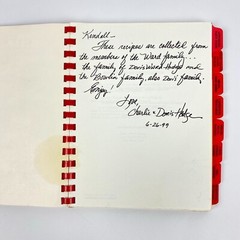 Kendall—
These recipes are collected from
the members of the Ward family...
the family of Doris Ward Hodge and
the Bowlin family, also Doris' family.
Enjoy!
Love,
Charlie & Doris Hodge
6-26-99